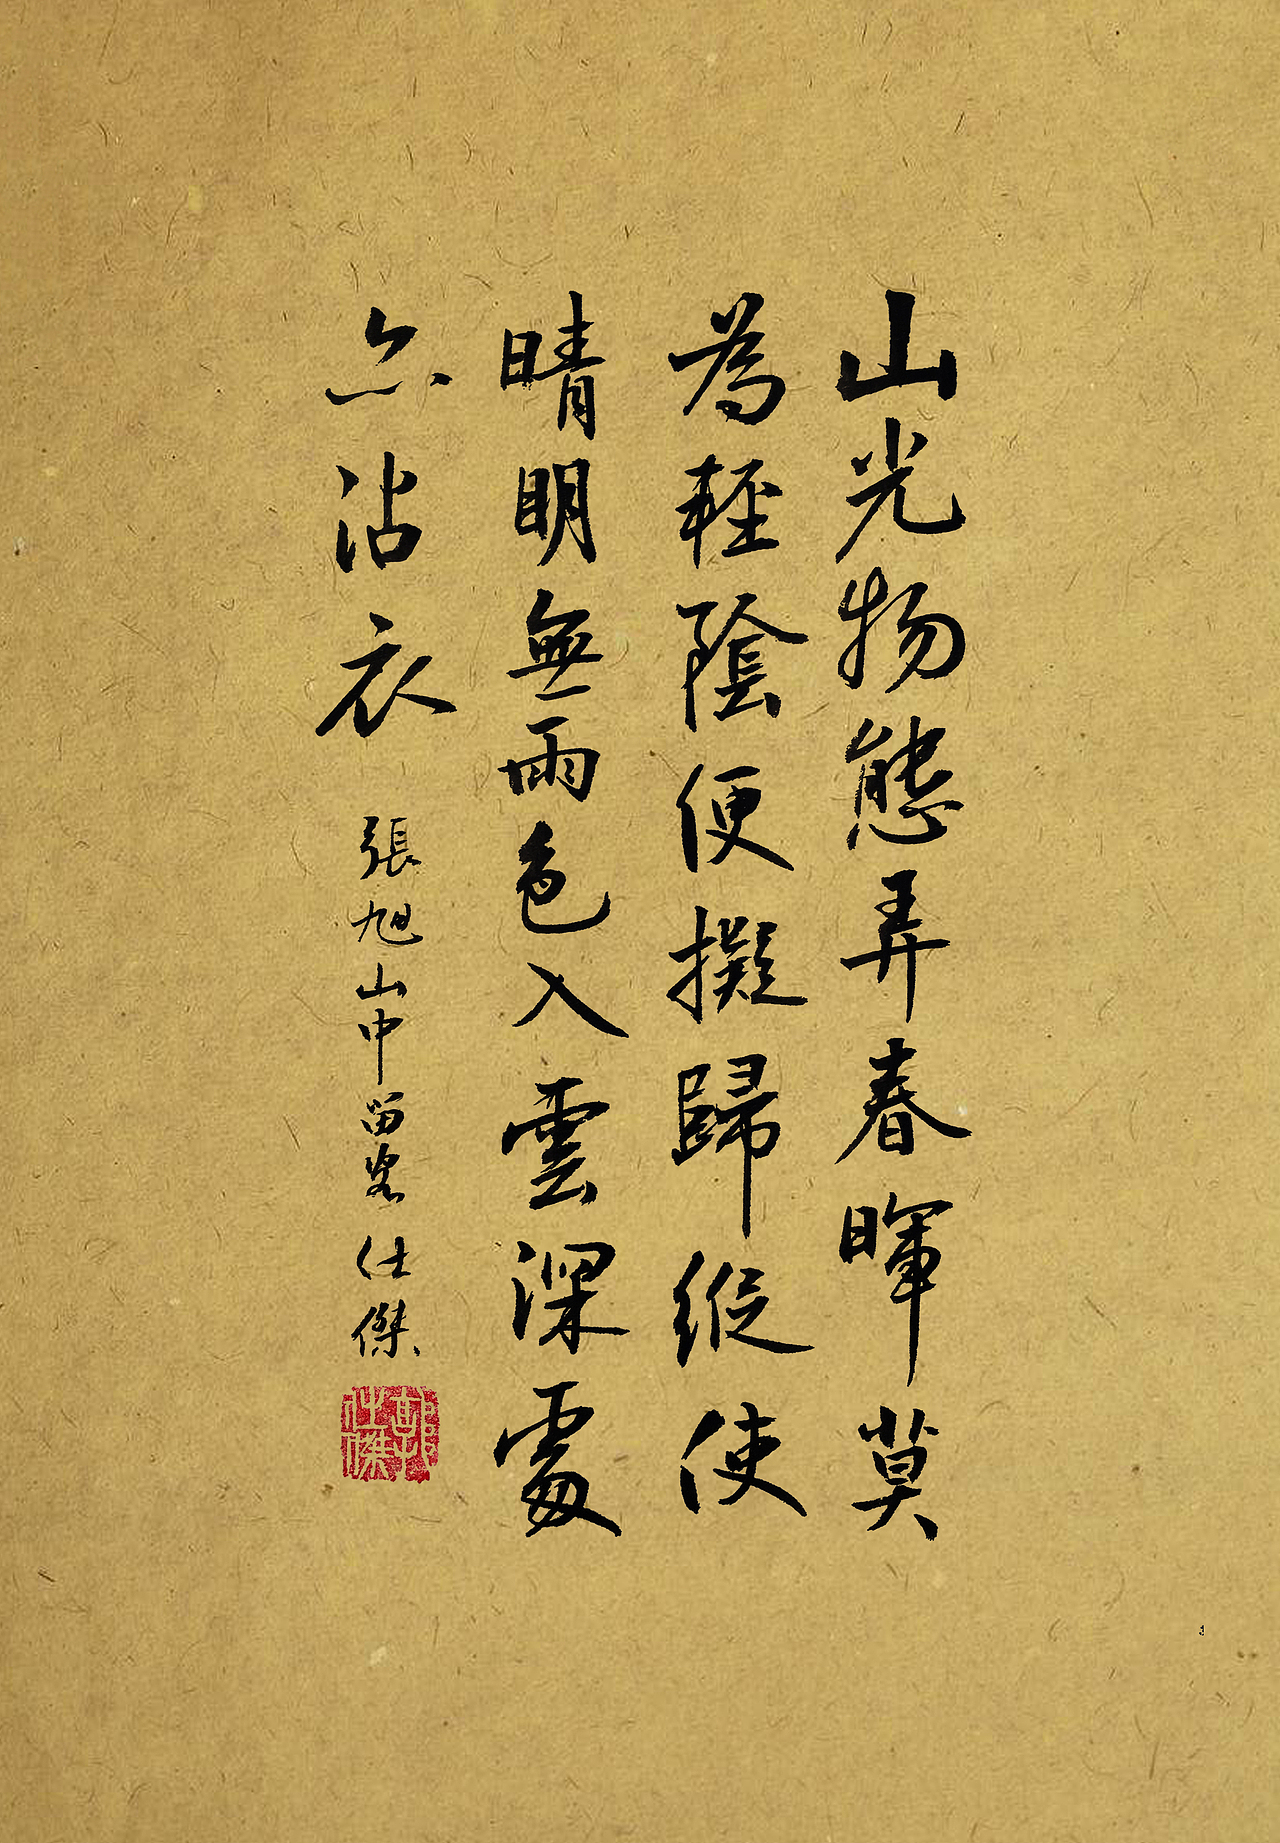 山光物態弄春暉莫
為輕陰便擬歸縱使
晴明無雨色入雲深處
亦沾衣
張旭山中留客 仕傑